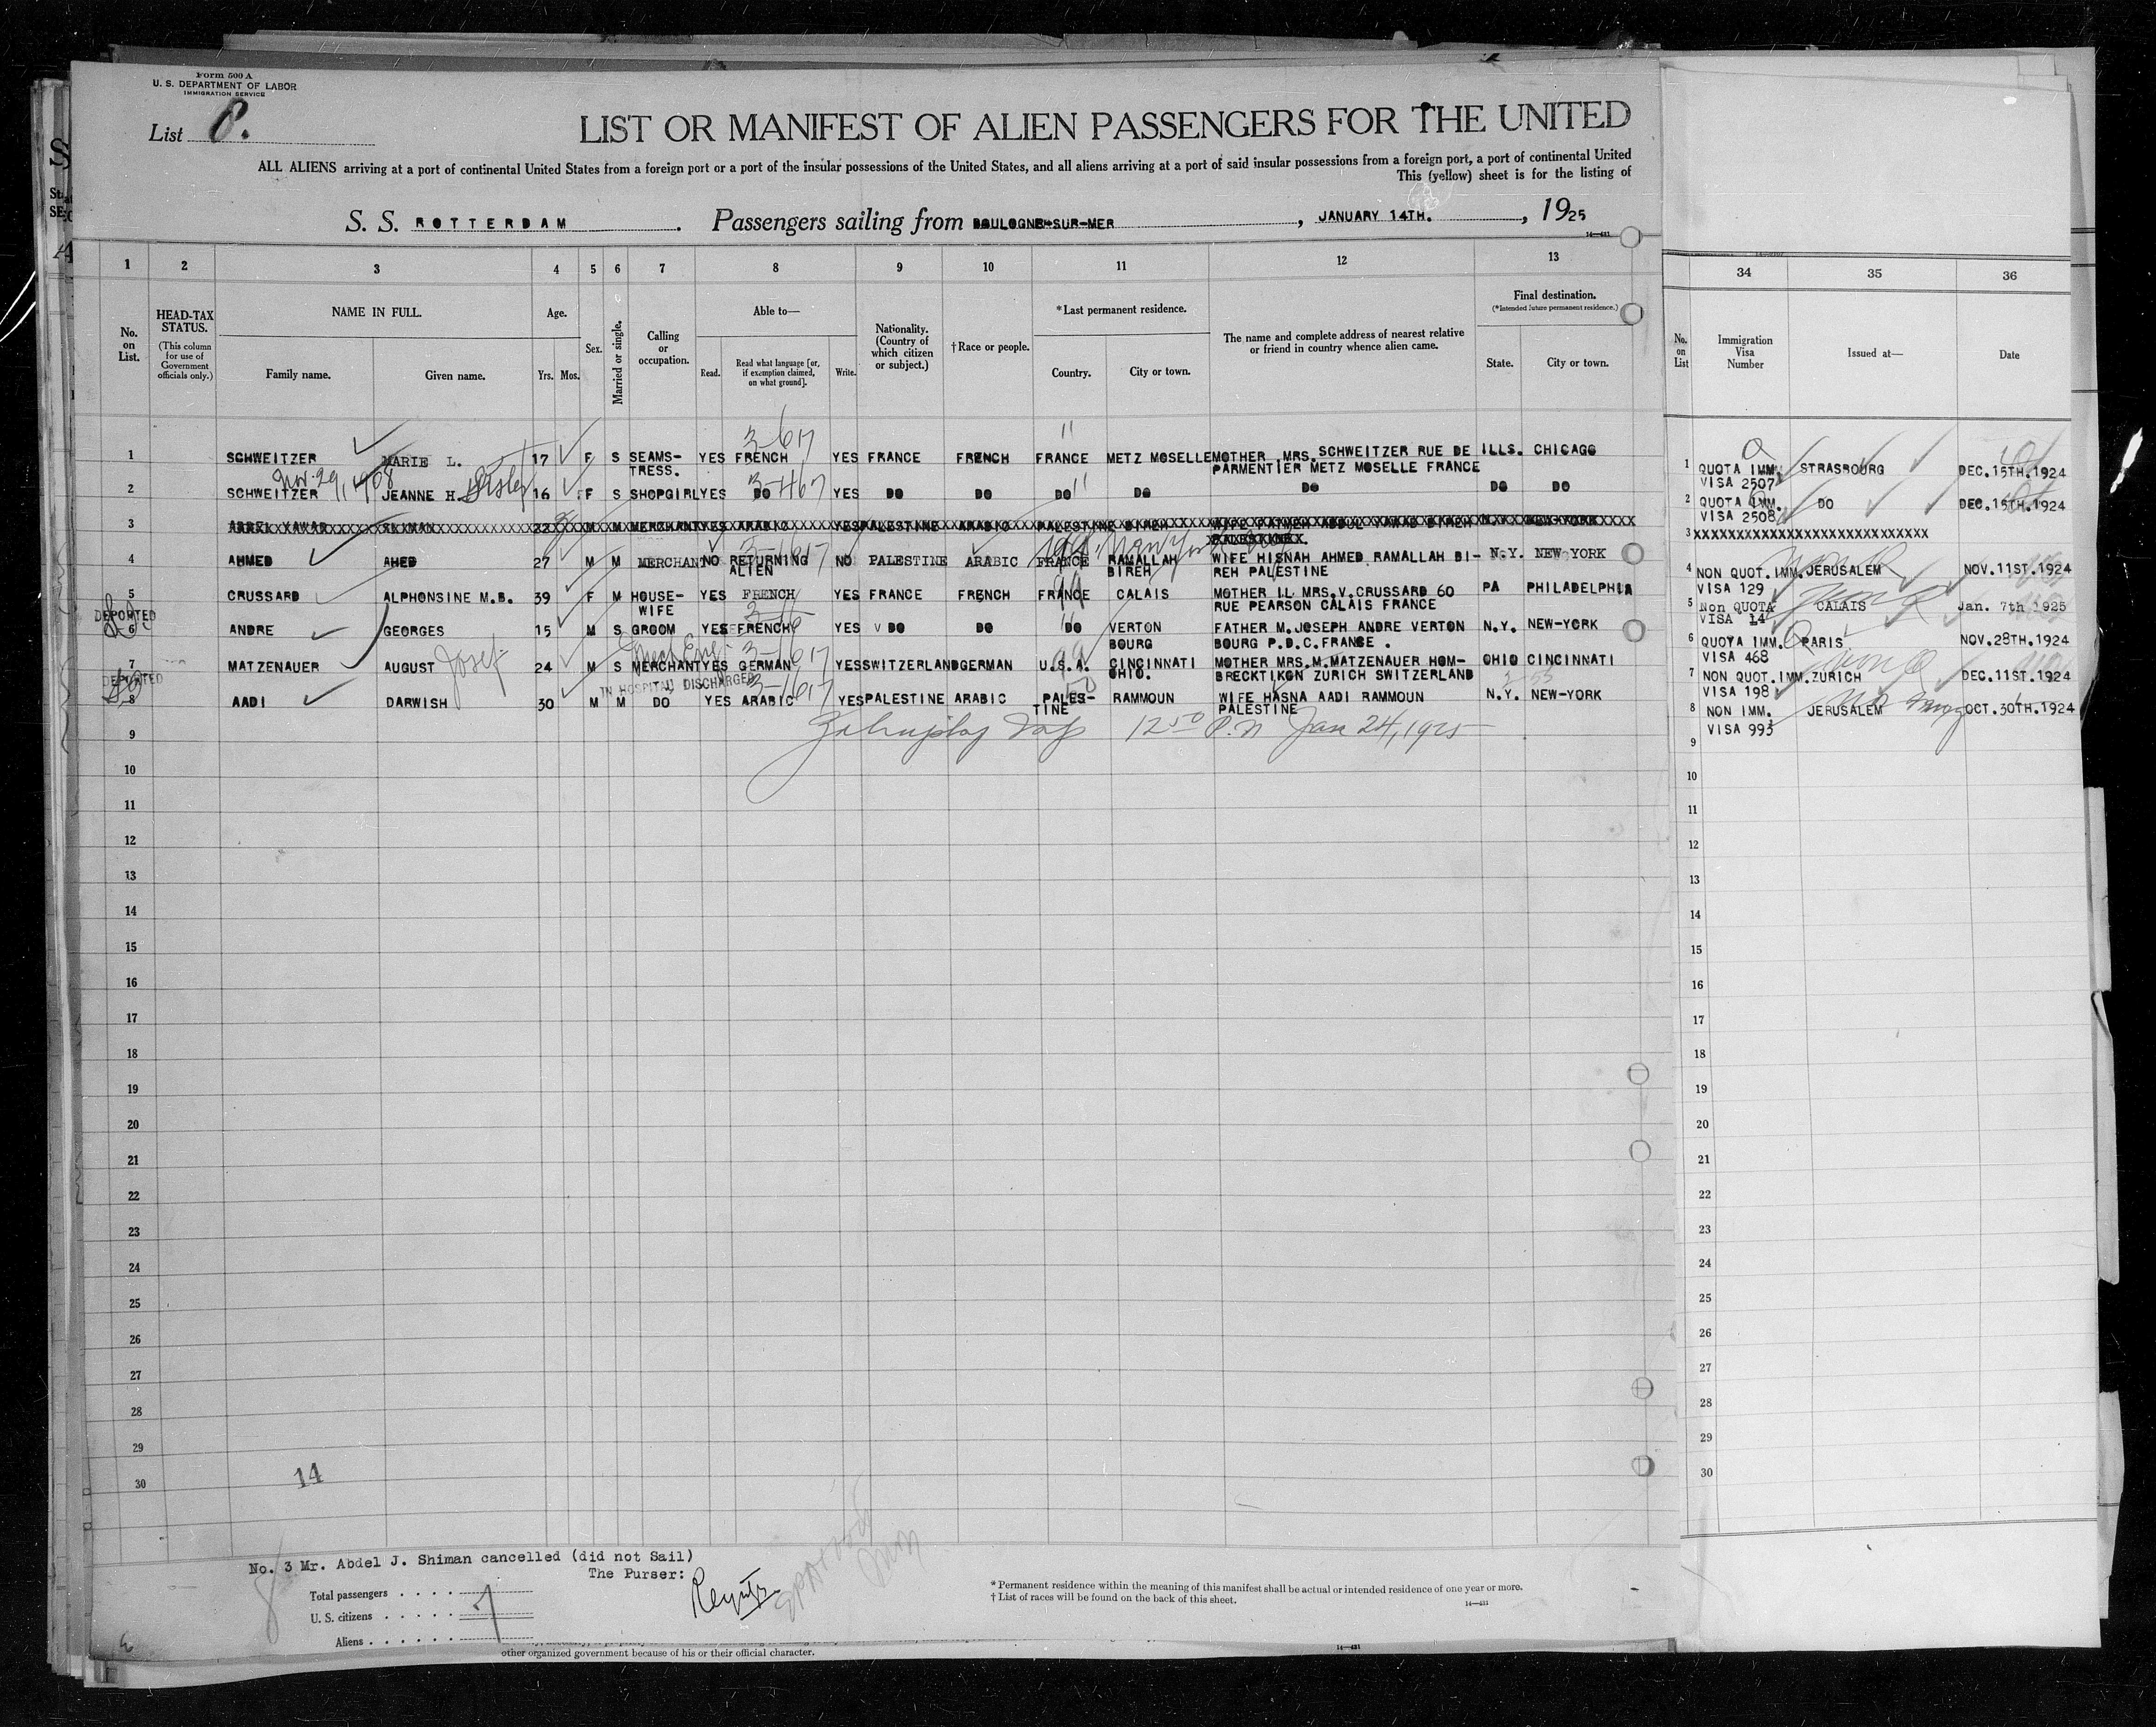 Form 500 A
U. S. DEPARTMENT OF LABOR
IMMIGRATION SERVICE
List 8.
LIST OR MANIFEST OF ALIEN PASSENGERS FOR THE UNITED
ALL ALIENS arriving at a port of continental United States from a foreign port or a port of the insular possessions of the United States, and all aliens arriving at a port of said insular possessions from a foreign port, a port of continental United
This (yellow) sheet is for the listing of
S. S. ROTTERDAM. Passengers sailing from BOULOGNE-SUR-MER, JANUARY 14TH., 1925
14—431
1 2 3 4 5 6 7 8 9 10 11 12 13 34 35 36
No. on List. HEAD-TAX STATUS. (This column for use of Government officials only.) NAME IN FULL. Family name. Given name. Age. Yrs. Mos. Sex. Married or single. Calling or occupation. Able to— Read. Read what language [or, if exemption claimed, on what ground]. Write. Nationality. (Country of which citizen or subject.) †Race or people. *Last permanent residence. Country. City or town. The name and complete address of nearest relative or friend in country whence alien came. Final destination. (*Intended future permanent residence.) State. City or town.
No. on List Immigration Visa Number Issued at— Date
1 SCHWEITZER MARIE L. 17 F S SEAMS- YES FRENCH YES FRANCE FRENCH FRANCE METZ MOSELLE MOTHER MRS. SCHWEITZER RUE DE ILLS. CHICAGO
TRESS. PARMENTIER METZ MOSELLE FRANCE
1 QUOTA IMM. STRASBOURG DEC.15TH.1924
VISA 2507
Nov. 29, 1908 Sister
2 SCHWEITZER JEANNE H. 16 F S SHOPGIRL YES DO YES DO DO DO DO DO DO DO
2 QUOTA IMM. DO DEC.15TH.1924
VISA 2508
3 ABDEL YAWAD SLIMAN 22 M M MERCHANT YES ARABIC YES PALESTINE ARABIC PALESTINE BIREH N.Y. NEW-YORK
3 XXXXXXXXXXXXXXXXXXXXXXXXXXXX
4 AHMED AHED 27 M M MERCHANT NO RETURNING NO PALESTINE ARABIC FRANCE RAMALLAH WIFE HISNAH AHMED RAMALLAH BI- N.Y. NEW YORK
ALIEN BIREH REH PALESTINE
4 NON QUOT.IMM. JERUSALEM NOV.11ST.1924
VISA 129
5 CRUSSARD ALPHONSINE M.B. 39 F M HOUSE- YES FRENCH YES FRANCE FRENCH FRANCE CALAIS MOTHER IL MRS.V.CRUSSARD 60 PA PHILADELPHIA
WIFE RUE PEARSON CALAIS FRANCE
5 Non QUOTA CALAIS Jan. 7th 1925
VISA 14
DEPORTED
6 ANDRE GEORGES 15 M S GROOM YES FRENCH YES DO DO DO VERTON FATHER M.JOSEPH ANDRE VERTON N.Y. NEW-YORK
BOURG BOURG P.D.C.FRANCE .
6 QUOTA IMM. PARIS NOV.28TH.1924
VISA 468
7 MATZENAUER AUGUST Josef 24 M S MERCHANT YES GERMAN YES SWITZERLAND GERMAN U.S.A. CINCINNATI MOTHER MRS.M.MATZENAUER HOM- OHIO CINCINNATI
OHIO. BRECKTIKON ZURICH SWITZERLAND
7 NON QUOT.IMM. ZURICH DEC.11ST.1924
VISA 198
DEPORTED
IN HOSPITAL DISCHARGED
8 AADI DARWISH 30 M M DO YES ARABIC YES PALESTINE ARABIC PALES- RAMMOUN WIFE HASNA AADI RAMMOUN N.Y. NEW-YORK
TINE PALESTINE
8 NON IMM. JERUSALEM OCT.30TH.1924
VISA 993
12 50 P.M Jan 24, 1925
9
10
11
12
13
14
15
16
17
18
19
20
21
22
23
24
25
26
27
28
29
30
14
No. 3 Mr. Abdel J. Shiman cancelled (did not Sail)
The Purser:
Total passengers
U. S. citizens
Aliens
7
*Permanent residence within the meaning of this manifest shall be actual or intended residence of one year or more.
†List of races will be found on the back of this sheet.
14—431
other organized government because of his or their official character.
14—431